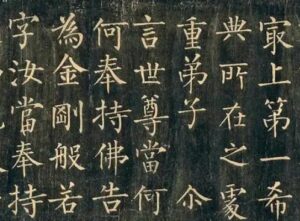 㝡上第一希
典所在之處
重弟子 尒
言世尊當何
何奉持佛告
為金剛般若
字汝當奉持